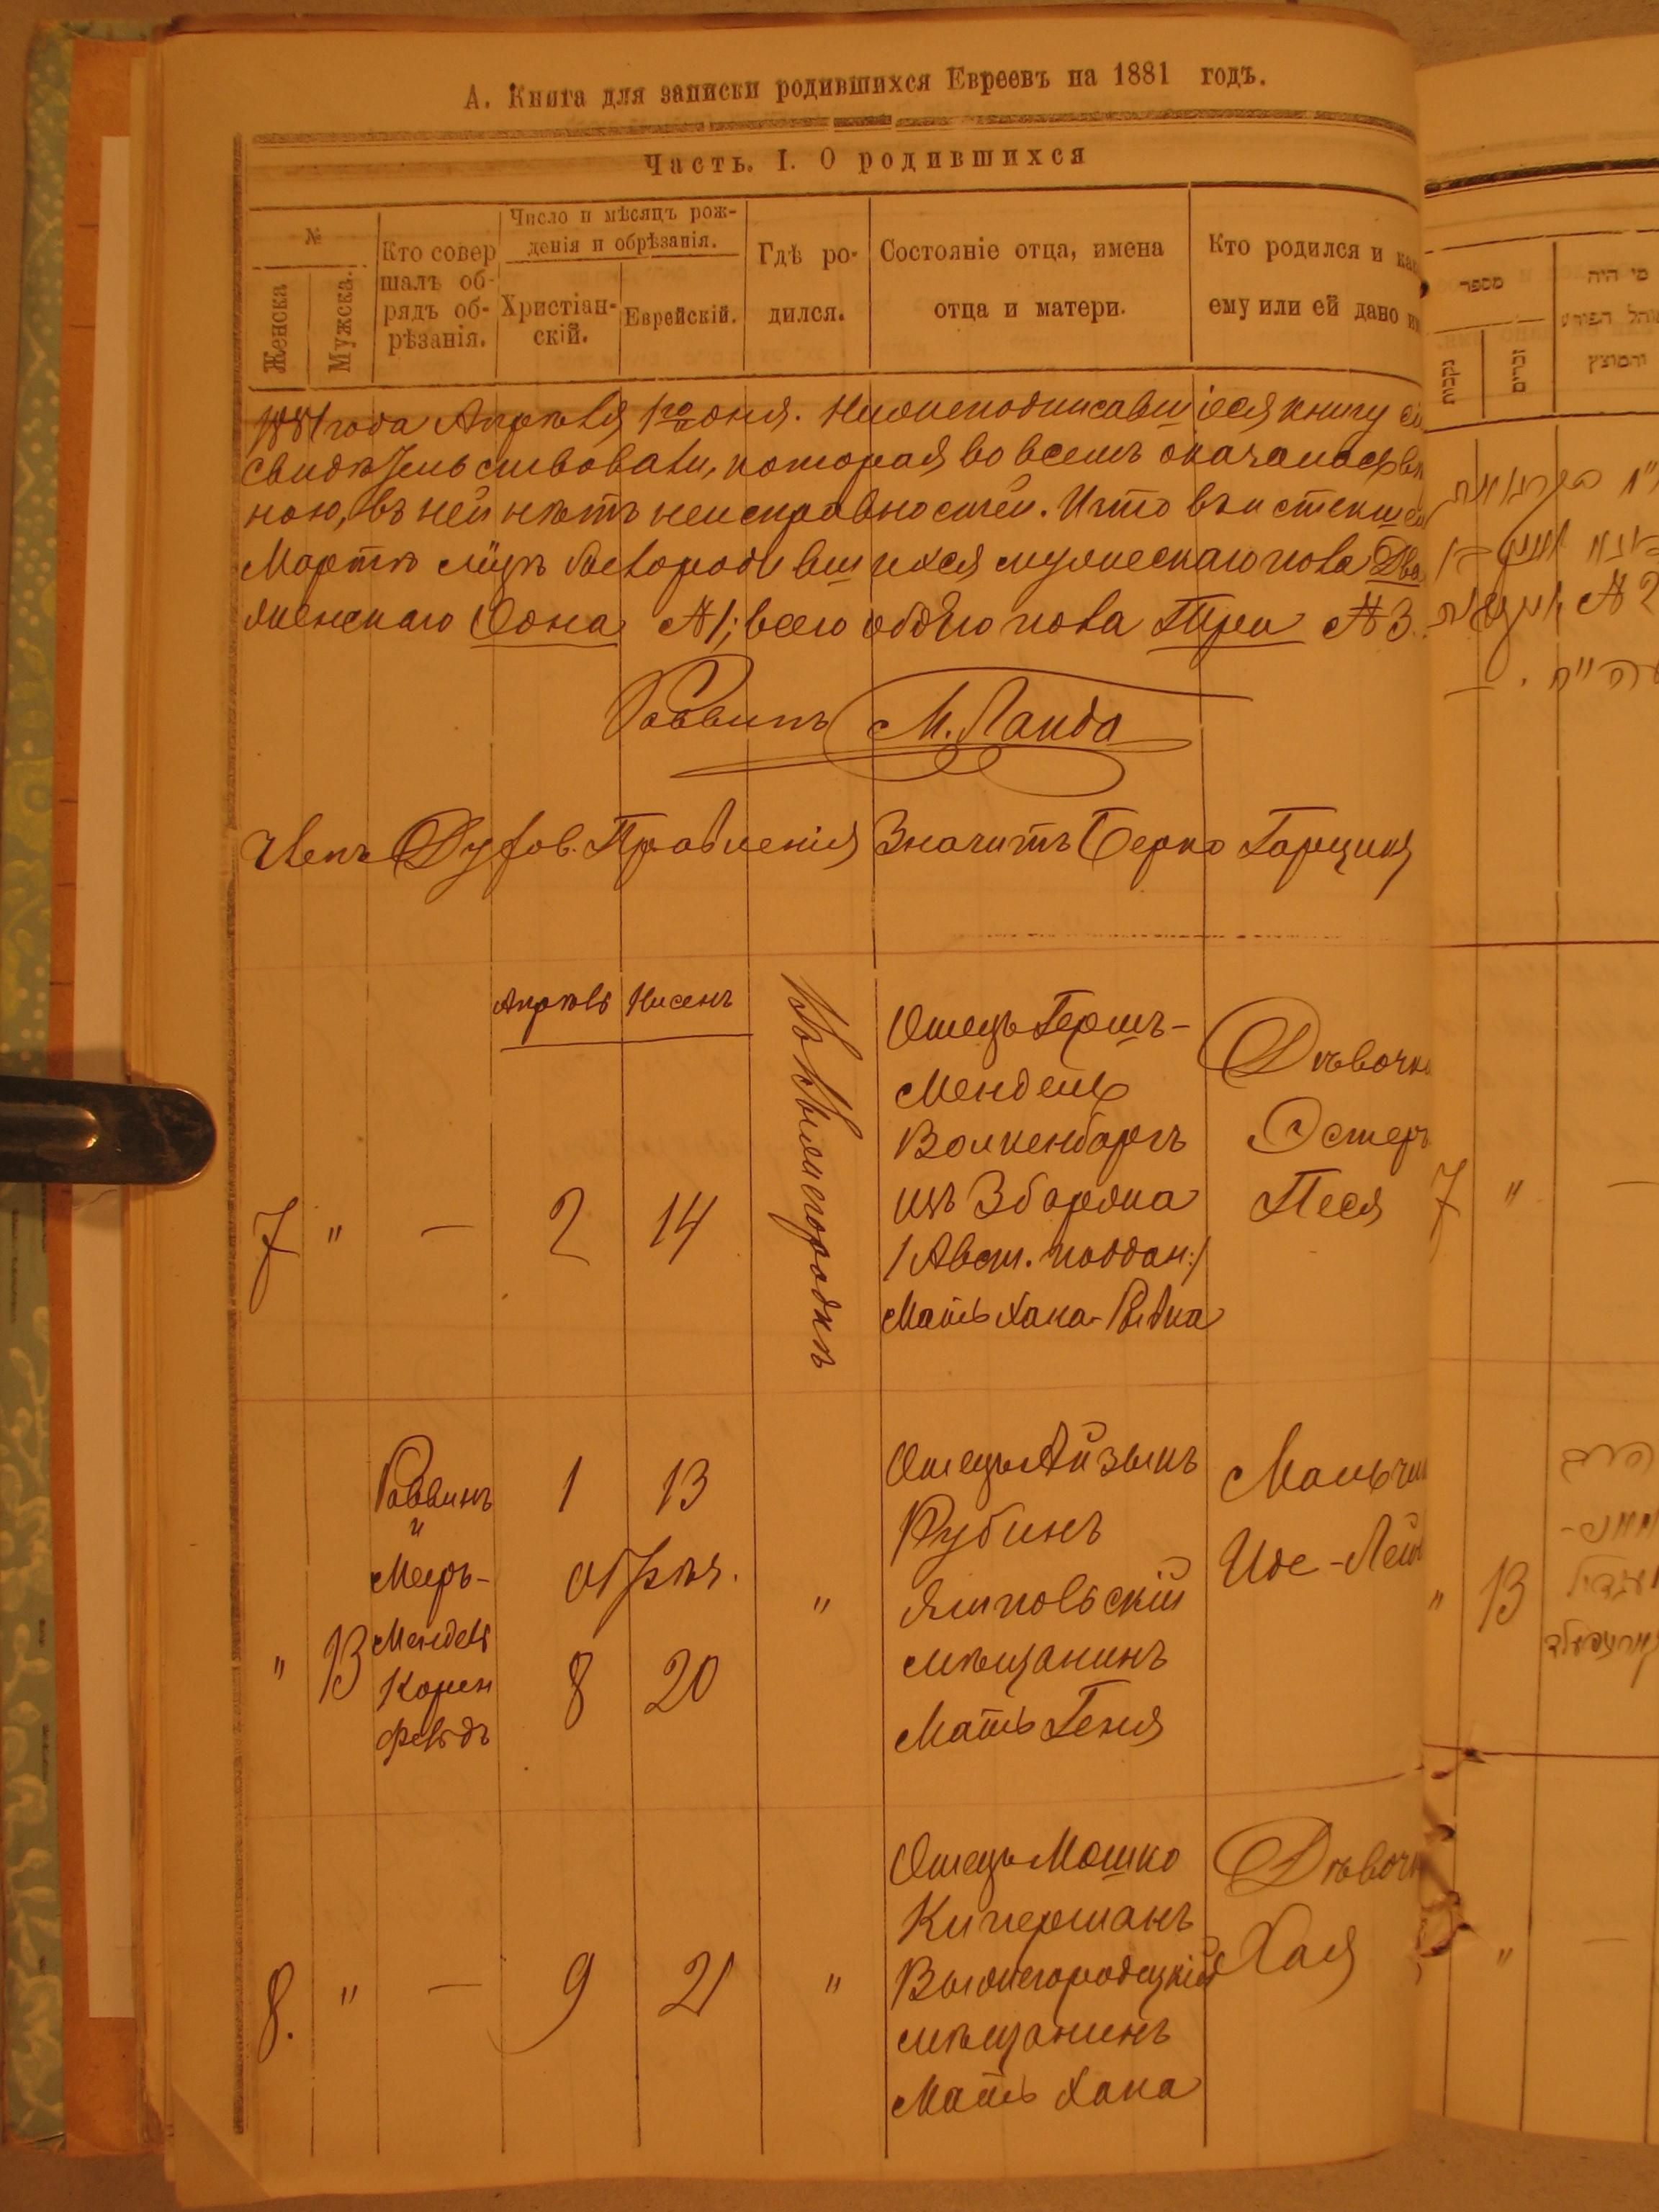 А. Книга для записки родившихся Евреевъ на 1881 годъ.
Часть. I. О родившихся
№
Женска
Мужска.
Кто совер
шалъ об-
рядъ об-
рѣзанія.
Число и мѣсяцъ рож-
денія и обрѣзанія.
Христіан-
скій.
Еврейскій.
Гдѣ ро-
дился.
Состояніе отца, имена
отца и матери.
Кто родился и
ему или ей дано
1881 года Апрѣля 1го дня. Нижеподписавшіеся книгу сі
свидѣтельствовали, которая во всемъ оказалась
ною, въ ней нѣтъ неисправностей. И что въ истекшем
Мартѣ мцѣ было родившихся мужескаго пола Два
женскаго Одна №1; всего обоего пола Три №3.
Раввинъ М. Ланда
Членъ Духов. Правленія Значитъ Берко Гарцикъ
Апрѣль Нисенъ
7 " — 2 14
Въ Вышегородкѣ
Отецъ Гершъ-
Мендель
Волкенбаргъ
изъ Збаража
/Авст. поддан:/
Мать Хана-Рейка
Дѣвочк
Эстеръ
Песя
" 13
Раввинъ
и
Мееръ-
Мендель
Корен
фельдъ
1 13
обрѣз.
8 20
"
Отецъ Айзыкъ
Рубинъ
Ямпольскій
мѣщанинъ
Мать Геня
Мальчик
Иде-Лей
8. " — 9 21 "
Отецъ Мошко
Киперманъ
Вышегородецкій
мѣщанинъ
Мать Хана
Дѣвочк
Хая
מספר
נקבות
זכרים
מי היה
והמוצץ
№ 2
7 " —
" 13
" —